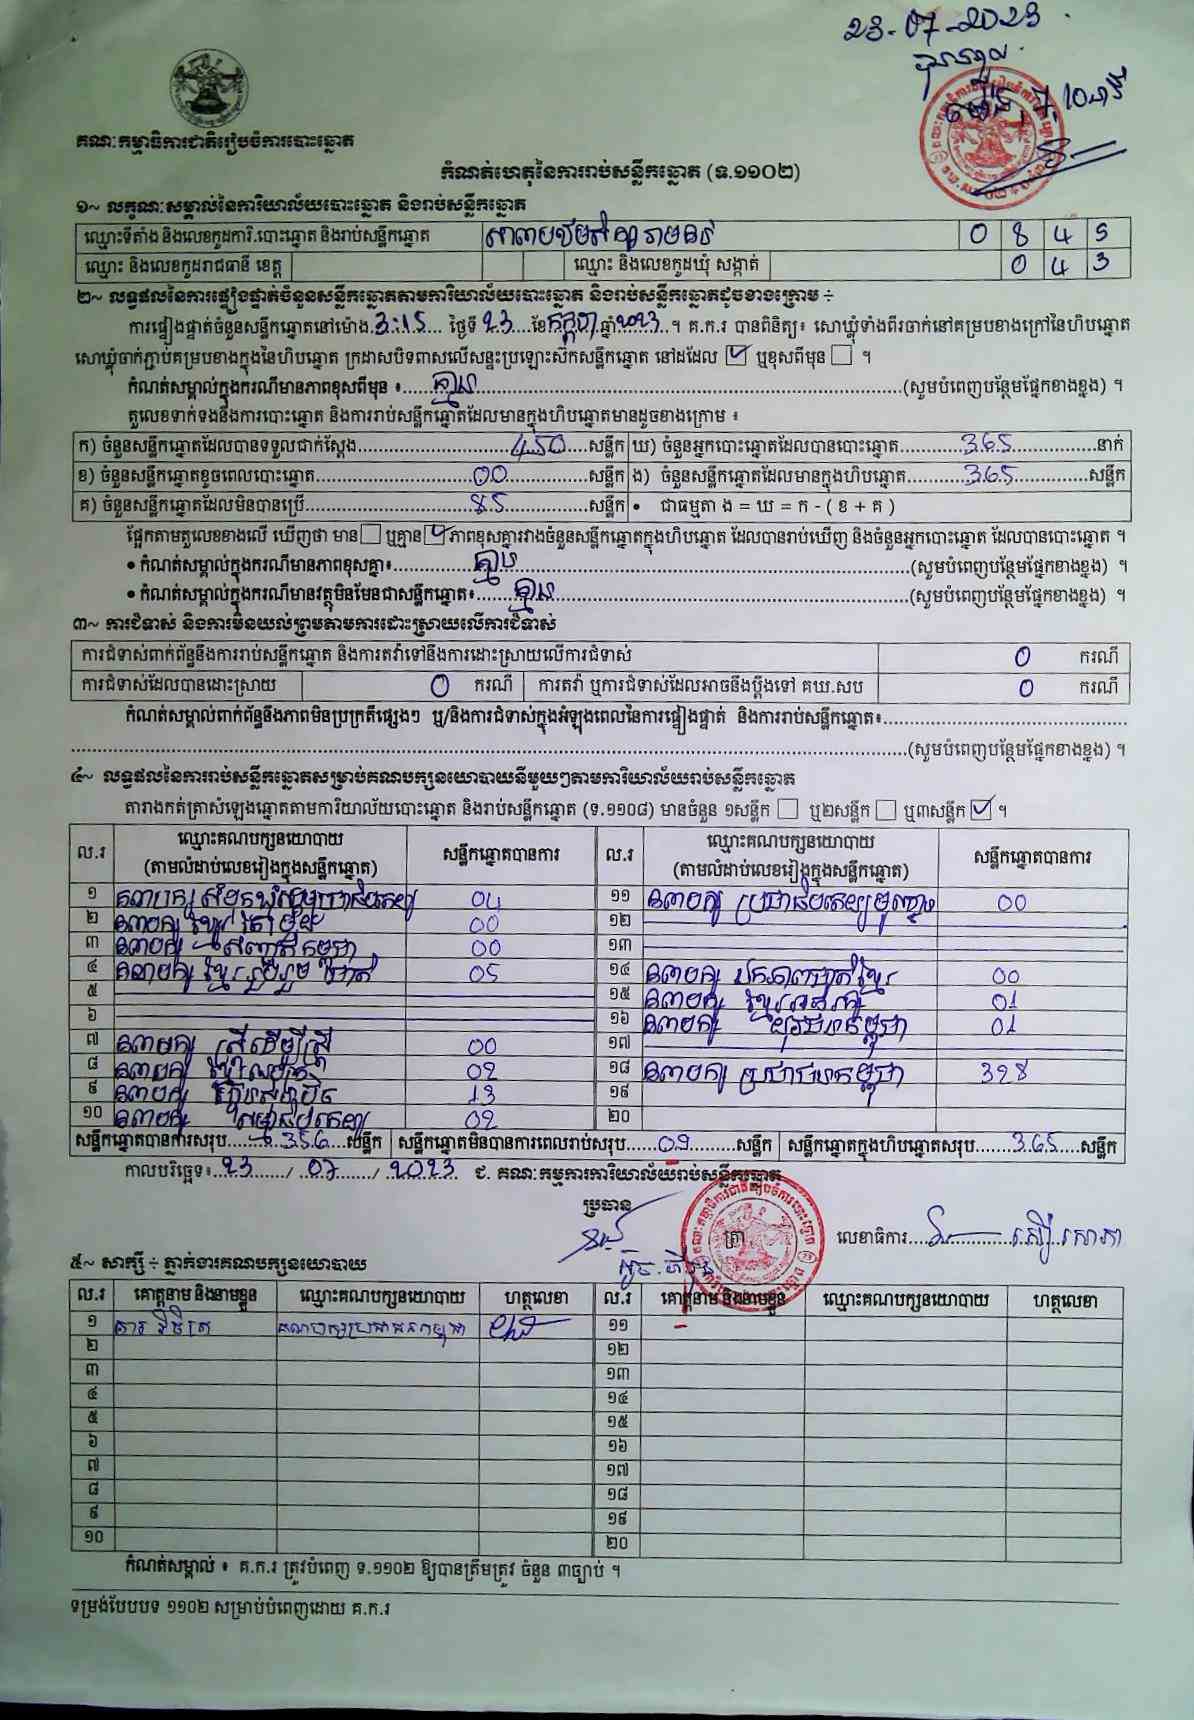 23-07-2023
គណៈកម្មាធិការជាតិរៀបចំការបោះឆ្នោត
កំណត់ហេតុនៃការរាប់សន្លឹកឆ្នោត (ទ.១១០២)
១~ លក្ខណៈសម្គាល់នៃការិយាល័យបោះឆ្នោត និងរាប់សន្លឹកឆ្នោត
ឈ្មោះទីតាំង និងលេខកូដការិ.បោះឆ្នោត និងរាប់សន្លឹកឆ្នោត 0 8 4 5
ឈ្មោះ និងលេខកូដរាជធានី ខេត្ត ឈ្មោះ និងលេខកូដឃុំ សង្កាត់ 0 4 3
២~ លទ្ធផលនៃការផ្ទៀងផ្ទាត់ចំនួនសន្លឹកឆ្នោតតាមការិយាល័យបោះឆ្នោត និងរាប់សន្លឹកឆ្នោតដូចខាងក្រោម ÷
ការផ្ទៀងផ្ទាត់ចំនួនសន្លឹកឆ្នោតនៅម៉ោង 3:15 ថ្ងៃទី 23 ខែ កក្កដា ឆ្នាំ 2023 ។ គ.ក.រ បានពិនិត្យ៖ សោឃ្លុំទាំងពីរចាក់នៅគម្របខាងក្រៅនៃហិបឆ្នោត
សោឃ្លុំចាក់ភ្ជាប់គម្របខាងក្នុងនៃហិបឆ្នោត ក្រដាសបិទពាសលើសន្ទះប្រឡោះស៊កសន្លឹកឆ្នោត នៅដដែល ☑ ឬខុសពីមុន ☐ ។
កំណត់សម្គាល់ក្នុងករណីមានភាពខុសពីមុន ៖ គ្មាន (សូមបំពេញបន្ថែមផ្នែកខាងខ្នង) ។
តួលេខទាក់ទងនឹងការបោះឆ្នោត និងការរាប់សន្លឹកឆ្នោតដែលមានក្នុងហិបឆ្នោតមានដូចខាងក្រោម ៖
ក) ចំនួនសន្លឹកឆ្នោតដែលបានទទួលជាក់ស្ដែង 450 សន្លឹក ឃ) ចំនួនអ្នកបោះឆ្នោតដែលបានបោះឆ្នោត 365 នាក់
ខ) ចំនួនសន្លឹកឆ្នោតខូចពេលបោះឆ្នោត 00 សន្លឹក ង) ចំនួនសន្លឹកឆ្នោតដែលមានក្នុងហិបឆ្នោត 365 សន្លឹក
គ) ចំនួនសន្លឹកឆ្នោតដែលមិនបានប្រើ 85 សន្លឹក • ជាធម្មតា ង = ឃ = ក - ( ខ + គ )
ផ្អែកតាមតួលេខខាងលើ ឃើញថា មាន ☐ ឬគ្មាន ☑ ភាពខុសគ្នារវាងចំនួនសន្លឹកឆ្នោតក្នុងហិបឆ្នោត ដែលបានរាប់ឃើញ និងចំនួនអ្នកបោះឆ្នោត ដែលបានបោះឆ្នោត ។
• កំណត់សម្គាល់ក្នុងករណីមានភាពខុសគ្នា៖ គ្មាន (សូមបំពេញបន្ថែមផ្នែកខាងខ្នង) ។
• កំណត់សម្គាល់ក្នុងករណីមានវត្ថុមិនមែនជាសន្លឹកឆ្នោត៖ គ្មាន (សូមបំពេញបន្ថែមផ្នែកខាងខ្នង) ។
៣~ ការជំទាស់ និងការមិនយល់ព្រមតាមការដោះស្រាយលើការជំទាស់
ការជំទាស់ពាក់ព័ន្ធនឹងការរាប់សន្លឹកឆ្នោត និងការតវ៉ាទៅនឹងការដោះស្រាយលើការជំទាស់ 0 ករណី
ការជំទាស់ដែលបានដោះស្រាយ 0 ករណី ការតវ៉ា ឬការជំទាស់ដែលអាចនឹងប្ដឹងទៅ គឃ.សប 0 ករណី
កំណត់សម្គាល់ពាក់ព័ន្ធនឹងភាពមិនប្រក្រតីផ្សេងៗ ឬ/និងការជំទាស់ក្នុងអំឡុងពេលនៃការផ្ទៀងផ្ទាត់ និងការរាប់សន្លឹកឆ្នោត៖
(សូមបំពេញបន្ថែមផ្នែកខាងខ្នង) ។
៤~ លទ្ធផលនៃការរាប់សន្លឹកឆ្នោតសម្រាប់គណបក្សនយោបាយនីមួយៗតាមការិយាល័យរាប់សន្លឹកឆ្នោត
តារាងកត់ត្រាសំឡេងឆ្នោតតាមការិយាល័យបោះឆ្នោត និងរាប់សន្លឹកឆ្នោត (ទ.១១០៨) មានចំនួន ១សន្លឹក ☐ ឬ២សន្លឹក ☐ ឬ៣សន្លឹក ☑ ។
ល.រ ឈ្មោះគណបក្សនយោបាយ (តាមលំដាប់លេខរៀងក្នុងសន្លឹកឆ្នោត) សន្លឹកឆ្នោតបានការ ល.រ ឈ្មោះគណបក្សនយោបាយ (តាមលំដាប់លេខរៀងក្នុងសន្លឹកឆ្នោត) សន្លឹកឆ្នោតបានការ
១ គណបក្ស សំបុកឃ្មុំសង្គមប្រជាធិបតេយ្យ 04 ១១ គណបក្ស ប្រជាធិបតេយ្យមូលដ្ឋាន 00
២ គណបក្ស ខ្មែរតែមួយ 00 ១២
៣ គណបក្ស សញ្ជាតិកម្ពុជា 00 ១៣
៤ គណបក្ស ខ្មែររួបរួមជាតិ 05 ១៤ គណបក្ស ឯកភាពជាតិខ្មែរ 00
៥ ១៥ គណបក្ស ខ្មែរអភិរក្ស 01
៦ ១៦ គណបក្ស យុវជនកម្ពុជា 01
៧ គណបក្ស ស្ត្រីដើម្បីស្ត្រី 00 ១៧
៨ គណបក្ស 02 ១៨ គណបក្ស ប្រជាជនកម្ពុជា 328
៩ គណបក្ស ហ្វ៊ុនស៊ិនប៉ិច 13 ១៩
១០ គណបក្ស 02 ២០
សន្លឹកឆ្នោតបានការសរុប 356 សន្លឹក សន្លឹកឆ្នោតមិនបានការពេលរាប់សរុប 09 សន្លឹក សន្លឹកឆ្នោតក្នុងហិបឆ្នោតសរុប 365 សន្លឹក
កាលបរិច្ឆេទ៖ 23 / 07 / 2023 ជ. គណៈកម្មការការិយាល័យរាប់សន្លឹកឆ្នោត
ប្រធាន
ត្រា
លេខាធិការ
៥~ សាក្សី ÷ ភ្នាក់ងារគណបក្សនយោបាយ
ល.រ គោត្តនាម និងនាមខ្លួន ឈ្មោះគណបក្សនយោបាយ ហត្ថលេខា ល.រ គោត្តនាម និងនាមខ្លួន ឈ្មោះគណបក្សនយោបាយ ហត្ថលេខា
១ គណបក្សប្រជាជនកម្ពុជា ១១
២ ១២
៣ ១៣
៤ ១៤
៥ ១៥
៦ ១៦
៧ ១៧
៨ ១៨
៩ ១៩
១០ ២០
កំណត់សម្គាល់ ៖ គ.ក.រ ត្រូវបំពេញ ទ.១១០២ ឱ្យបានត្រឹមត្រូវ ចំនួន ៣ច្បាប់ ។
ទម្រង់បែបបទ ១១០២ សម្រាប់បំពេញដោយ គ.ក.រ